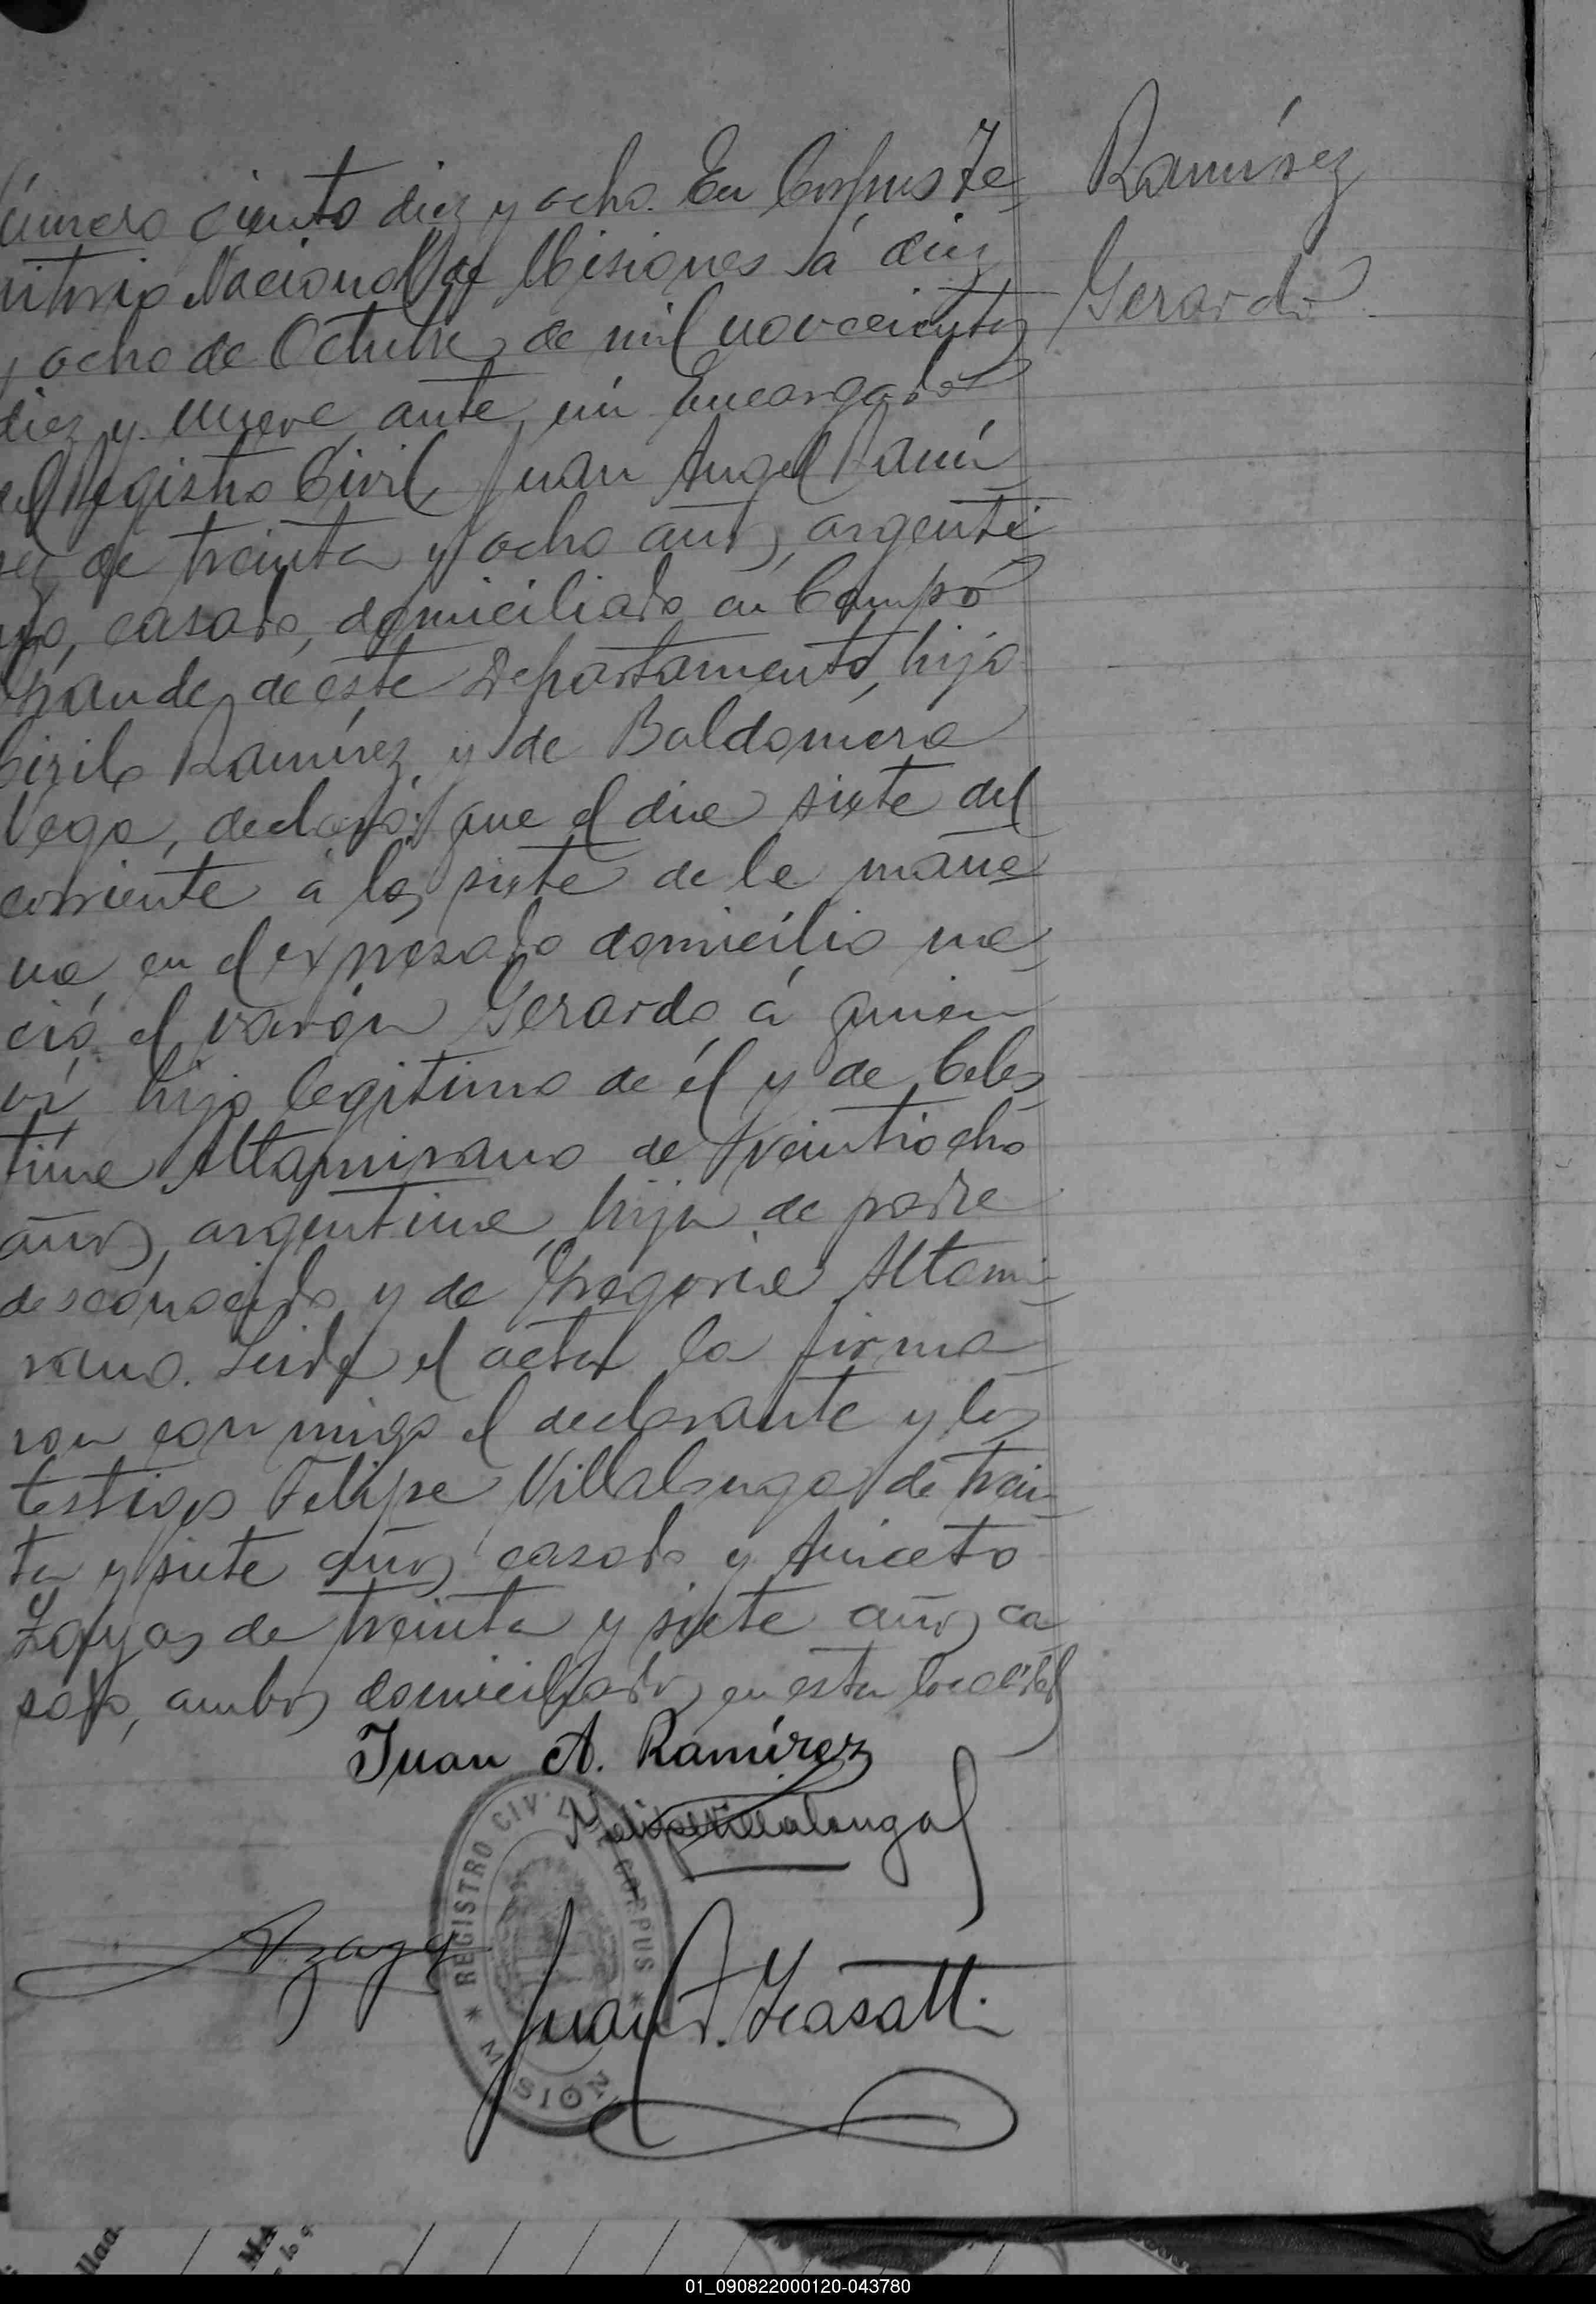 Ramírez
Gerardo
Número ciento diez y ocho. En Corpus Te
rritorio Nacional de Misiones á diez
y ocho de Octubre de mil novecientos
diez y nueve, ante mí Encargado
del Registro Civil, Juan Angel Ramí
rez de treinta y ocho años, argenti
no, casado, domiciliado en Campo
Grande, de este Departamento, hijo
Cirilo Ramírez y de Baldomera
Vega, declaró: que el dia siete del
corriente á las siete de la maña
na en el expresado domicilio na
ció el varón Gerardo á quien
ví hijo legitimo de él y de Celes
tina Altamirano de treintiocho
años, argentina, hija de padre
desconocido y de Gregoria Altami
rano. Leida el acta la firma
ron conmigo el declarante y los
testigos Felipe Villalonga de trein
ta y siete años casado y Aniceto
Zayas de treinta y siete años ca
sado, ambos domiciliados en esta localidad
Juan A. Ramírez
Felipe Villalonga
REGISTRO CIVIL CORPUS
* MISIONES *
Azaya
Juan